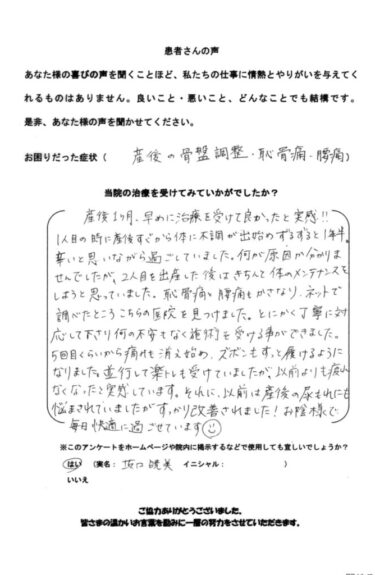 患者さんの声
あなた様の喜びの声を聞くことほど、私たちの仕事に情熱とやりがいを与えてく
れるものはありません。良いこと・悪いこと、どんなことでも結構です。
是非、あなた様の声を聞かせてください。
お困りだった症状（ 産後の骨盤調整・恥骨痛・腰痛）
当院の治療を受けてみていかがでしたか？
産後1ヶ月、早めに治療を受けて良かったと実感!!
1人目の時に産後すぐから体に不調が出始めずるずると1年半。
辛いと思いながら過ごしていました。何が原因か分かりま
せんでしたが、2人目を出産した後はきちんと体のメンテナンスを
しようと思っていました。恥骨痛と腰痛もかさなり、ネットで
調べたところこちらの医院を見つけました。とにかく丁寧に対
応して下さり何の不安もなく施術を受ける事ができました。
5回目くらいから痛みも消え始め、ズボンもすっと履けるように
なりました。並行して楽トレも受けていましたが、以前よりも疲れ
なくなったと実感しています。それに、以前は産後の尿もれにも
悩まされていましたがすっかり改善されました！お陰様で
毎日快適に過ごせています
※このアンケートをホームページや院内に掲示するなどで使用しても宜しいでしょうか？
はい （実名： 坂口 暁美 イニシャル： ）
いいえ
ご協力ありがとうございました。
皆さまの温かいお言葉を励みに一層の努力をさせていただきます。